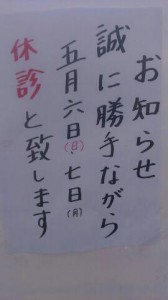 お知らせ
誠に勝手ながら
五月六日(日)・七日(月)
休診と致します